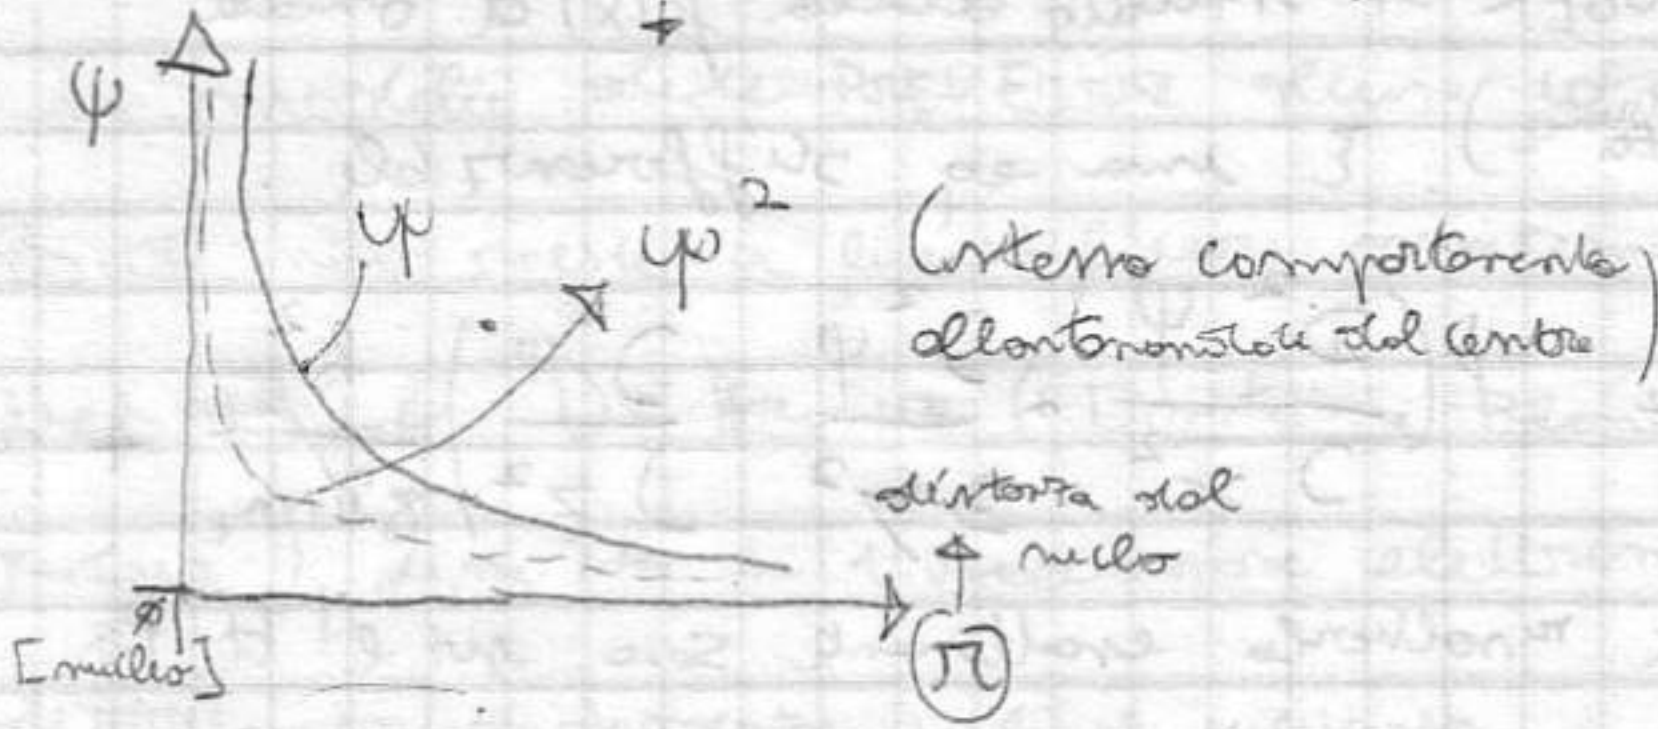 ψ
ψ
ψ²
(stesso comportamento
allontanandosi dal centro)
distanza dal
nucleo
0
[nucleo]
r